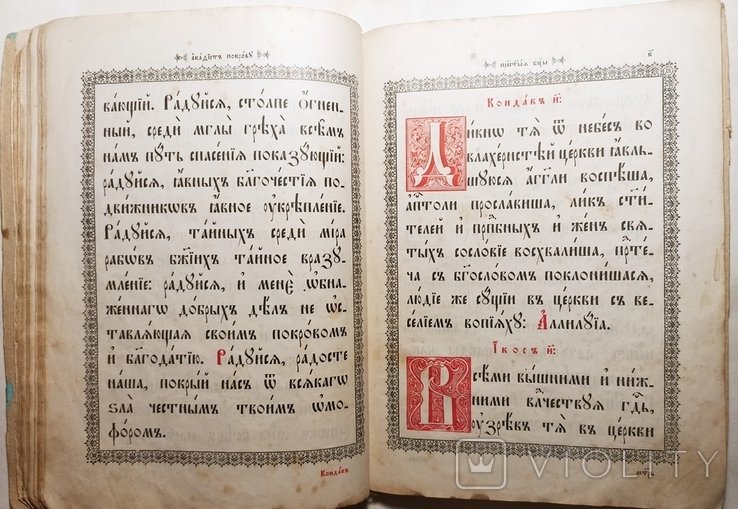 акаѳістъ покровꙋ
вающїй. Ра́дꙋйсѧ, сто́лпе ѻ҆́гнен-
ный, средѝ мглы̀ грѣха̀ всѣ́мъ
на́мъ пꙋ́ть спасе́нїѧ показꙋ́ющїй:
ра́дꙋйсѧ, ꙗ҆́вныхъ бл҃гоче́стїѧ по-
дви́жникѡвъ ꙗ҆́вное ᲂу҆крѣпле́нїе.
Ра́дꙋйсѧ, та́йныхъ средѝ мі́ра
рабѡ́въ бж҃їихъ та́йное вразꙋ-
мле́нїе: ра́дꙋйсѧ, и҆ менѐ ѡ҆бна-
же́ннаго до́брыхъ дѣ́лъ не ѡ҆-
ставлѧ́ющаѧ свои́мъ покро́вомъ
и҆ бл҃года́тїю. Ра́дꙋйсѧ, ра́досте
на́ша, покры́й на́съ ѿ всѧ́кагѡ
ѕла̀ че́стнымъ твои́мъ ѡ҆мо-
фо́ромъ.
Кондакъ
прест҃ыѧ бцы
Конда́къ и҃:
Ди́внѡ тѧ̀ ѿ небе́съ во
влахе́рнстѣй це́ркви ꙗ҆́вль-
шꙋюсѧ а҆́гг҃ли воспѣ́ша,
а҆пⷭ҇толи просла́виша, ли́къ ст҃и́-
телей и҆ прпⷣбныхъ и҆ же́нъ свѧ-
ты́хъ сосло́вїе восхвали́ша, прⷣте́-
ча съ бг҃осло́вомъ поклони́шасѧ,
лю́дїе же сꙋ́щїи въ це́ркви съ ве-
се́лїемъ вопїѧ́хꙋ: А҆ллилꙋ́їа.
І҆́косъ и҃:
Всѣ́ми вы́шними и҆ ни́ж-
ними влⷣчествꙋѧ гдⷭ҇ь,
ᲂу҆зрѣ́въ тѧ̀ въ це́ркви
мт҃рь
VIOLITY